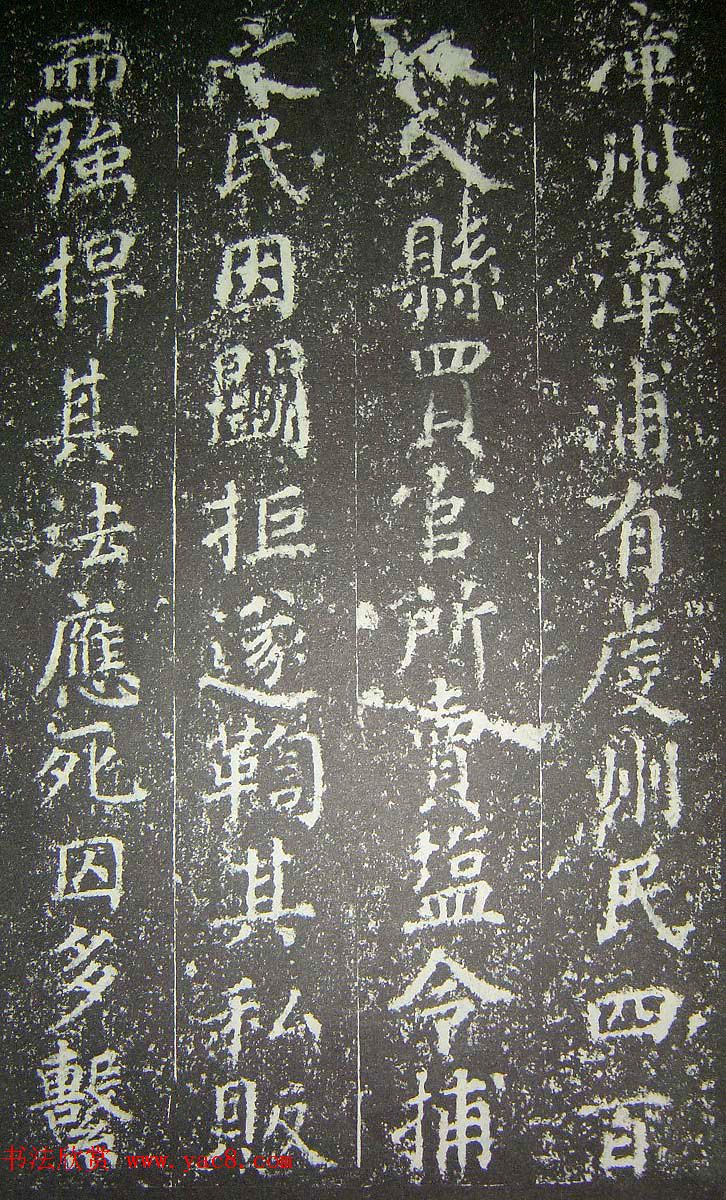 漳州漳浦有虔州民四百
入縣買官所賣塩令捕
之民因鬭拒遂鞫其私販
而強捍其法應死囚多繫
书法欣赏 www.yac8.com